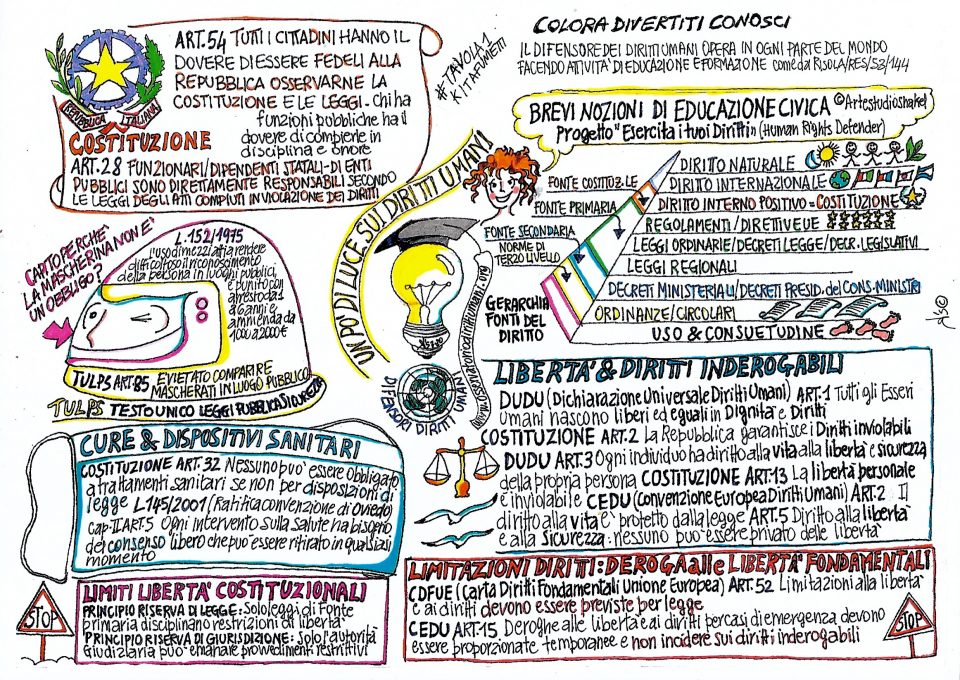 COLORA DIVERTITI CONOSCI
IL DIFENSORE DEI DIRITTI UMANI OPERA IN OGNI PARTE DEL MONDO
FACENDO ATTIVITA' DI EDUCAZIONE E FORMAZIONE come da RISOLA/RES/53/144
#TAVOLA 1
KITTAFUMETTI
REPUBBLICA ITALIANA
COSTITUZIONE
ART.54 TUTTI I CITTADINI HANNO IL
DOVERE DI ESSERE FEDELI ALLA
REPUBBLICA OSSERVARNE LA
COSTITUZIONE E LE LEGGI - Chi ha
funzioni pubbliche ha il
dovere di compierle in
disciplina e onore
ART.28 FUNZIONARI/DIPENDENTI STATALI-DI ENTI
PUBBLICI SONO DIRETTAMENTE RESPONSABILI SECONDO
LE LEGGI DEGLI ATTI COMPIUTI IN VIOLAZIONE DEI DIRITTI
BREVI NOZIONI DI EDUCAZIONE CIVICA ©Artestudioshakel
Progetto "Esercita i tuoi Diritti" (Human Rights Defender)
UN PO' DI LUCE SUI DIRITTI UMANI
FONTE COSTITUZ.LE
FONTE PRIMARIA
FONTE SECONDARIA
NORME DI
TERZO LIVELLO
GERARCHIA
FONTI DEL
DIRITTO
DIRITTO NATURALE
DIRITTO INTERNAZIONALE
DIRITTO INTERNO POSITIVO = COSTITUZIONE
REGOLAMENTI/DIRETTIVE UE
LEGGI ORDINARIE/DECRETI LEGGE/DECR. LEGISLATIVI
LEGGI REGIONALI
DECRETI MINISTERIALI/DECRETI PRESID. del CONS. MINISTRI
ORDINANZE/CIRCOLARI
USO & CONSUETUDINE
CAPITO PERCHE'
LA MASCHERINA NON E'
UN OBBLIGO?
L.152/1975
l'uso di mezzi atti a rendere
difficoltoso il riconoscimento
della persona in luoghi pubblici,
è punito con
arresto da 1
a 6 anni e
ammenda da
1000 a 2000€
TULPS ART.85 E' VIETATO COMPARIRE
MASCHERATI IN LUOGO PUBBLICO
TULPS TESTO UNICO LEGGI PUBBLICA SICUREZZA
DIFENSORI DIRITTI UMANI
CURE & DISPOSITIVI SANITARI
COSTITUZIONE ART.32 Nessuno può essere obbligato
a trattamenti sanitari se non per disposizioni di
legge L.145/2001 (Ratifica convenzione di Oviedo)
Cap.II ART.5 Ogni intervento sulla salute ha bisogno
del consenso libero che può essere ritirato in qualsiasi
momento
LIBERTA' & DIRITTI INDEROGABILI
DUDU (Dichiarazione Universale Diritti Umani) ART.1 Tutti gli Esseri
Umani nascono liberi ed eguali in Dignità e Diritti
COSTITUZIONE ART.2 La Repubblica garantisce i Diritti inviolabili
DUDU ART.3 Ogni individuo ha diritto alla vita alla libertà e sicurezza
della propria persona COSTITUZIONE ART.13 La libertà personale
è inviolabile CEDU (Convenzione Europea Diritti Umani) ART.2 Il
diritto alla vita è protetto dalla legge ART.5 Diritto alla libertà
e alla sicurezza: nessuno può essere privato delle libertà
LIMITI LIBERTA' COSTITUZIONALI
PRINCIPIO RISERVA DI LEGGE: Solo leggi di Fonte
primaria disciplinano restrizioni di libertà
PRINCIPIO RISERVA DI GIURISDIZIONE: Solo l'autorità
Giudiziaria può emanare provvedimenti restrittivi
STOP
LIMITAZIONI DIRITTI: DEROGA alle LIBERTA' FONDAMENTALI
CDFUE (Carta Diritti Fondamentali Unione Europea) ART.52 Limitazioni alla libertà
e ai diritti devono essere previste per legge
CEDU ART.15 Deroghe alle libertà e ai diritti per casi di emergenza devono
essere proporzionate temporanee e non incidere sui diritti inderogabili
STOP